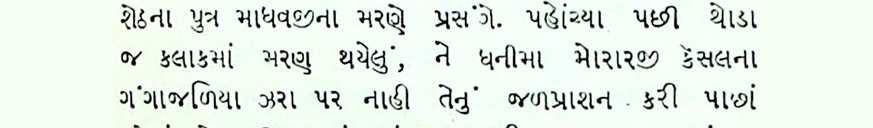 શેઠના પુત્ર માધવજીના મરણ પ્રસંગે. પહોંચ્યા પછી થોડા
જ કલાકમાં મરણ થયેલું, ને ધનીમા મોરારજી કેસલના
ગંગાજળિયા ઝરા પર નાહી તેનું જળપ્રાશન કરી પાછાં